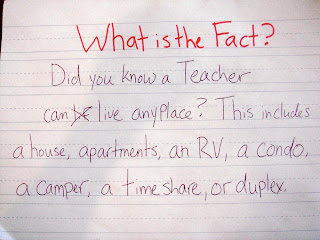 What is the Fact?
Did you know a Teacher
can live anyPlace? This includes
a house, apartments, an RV, a condo,
a camper, a timeshare, or duplex.